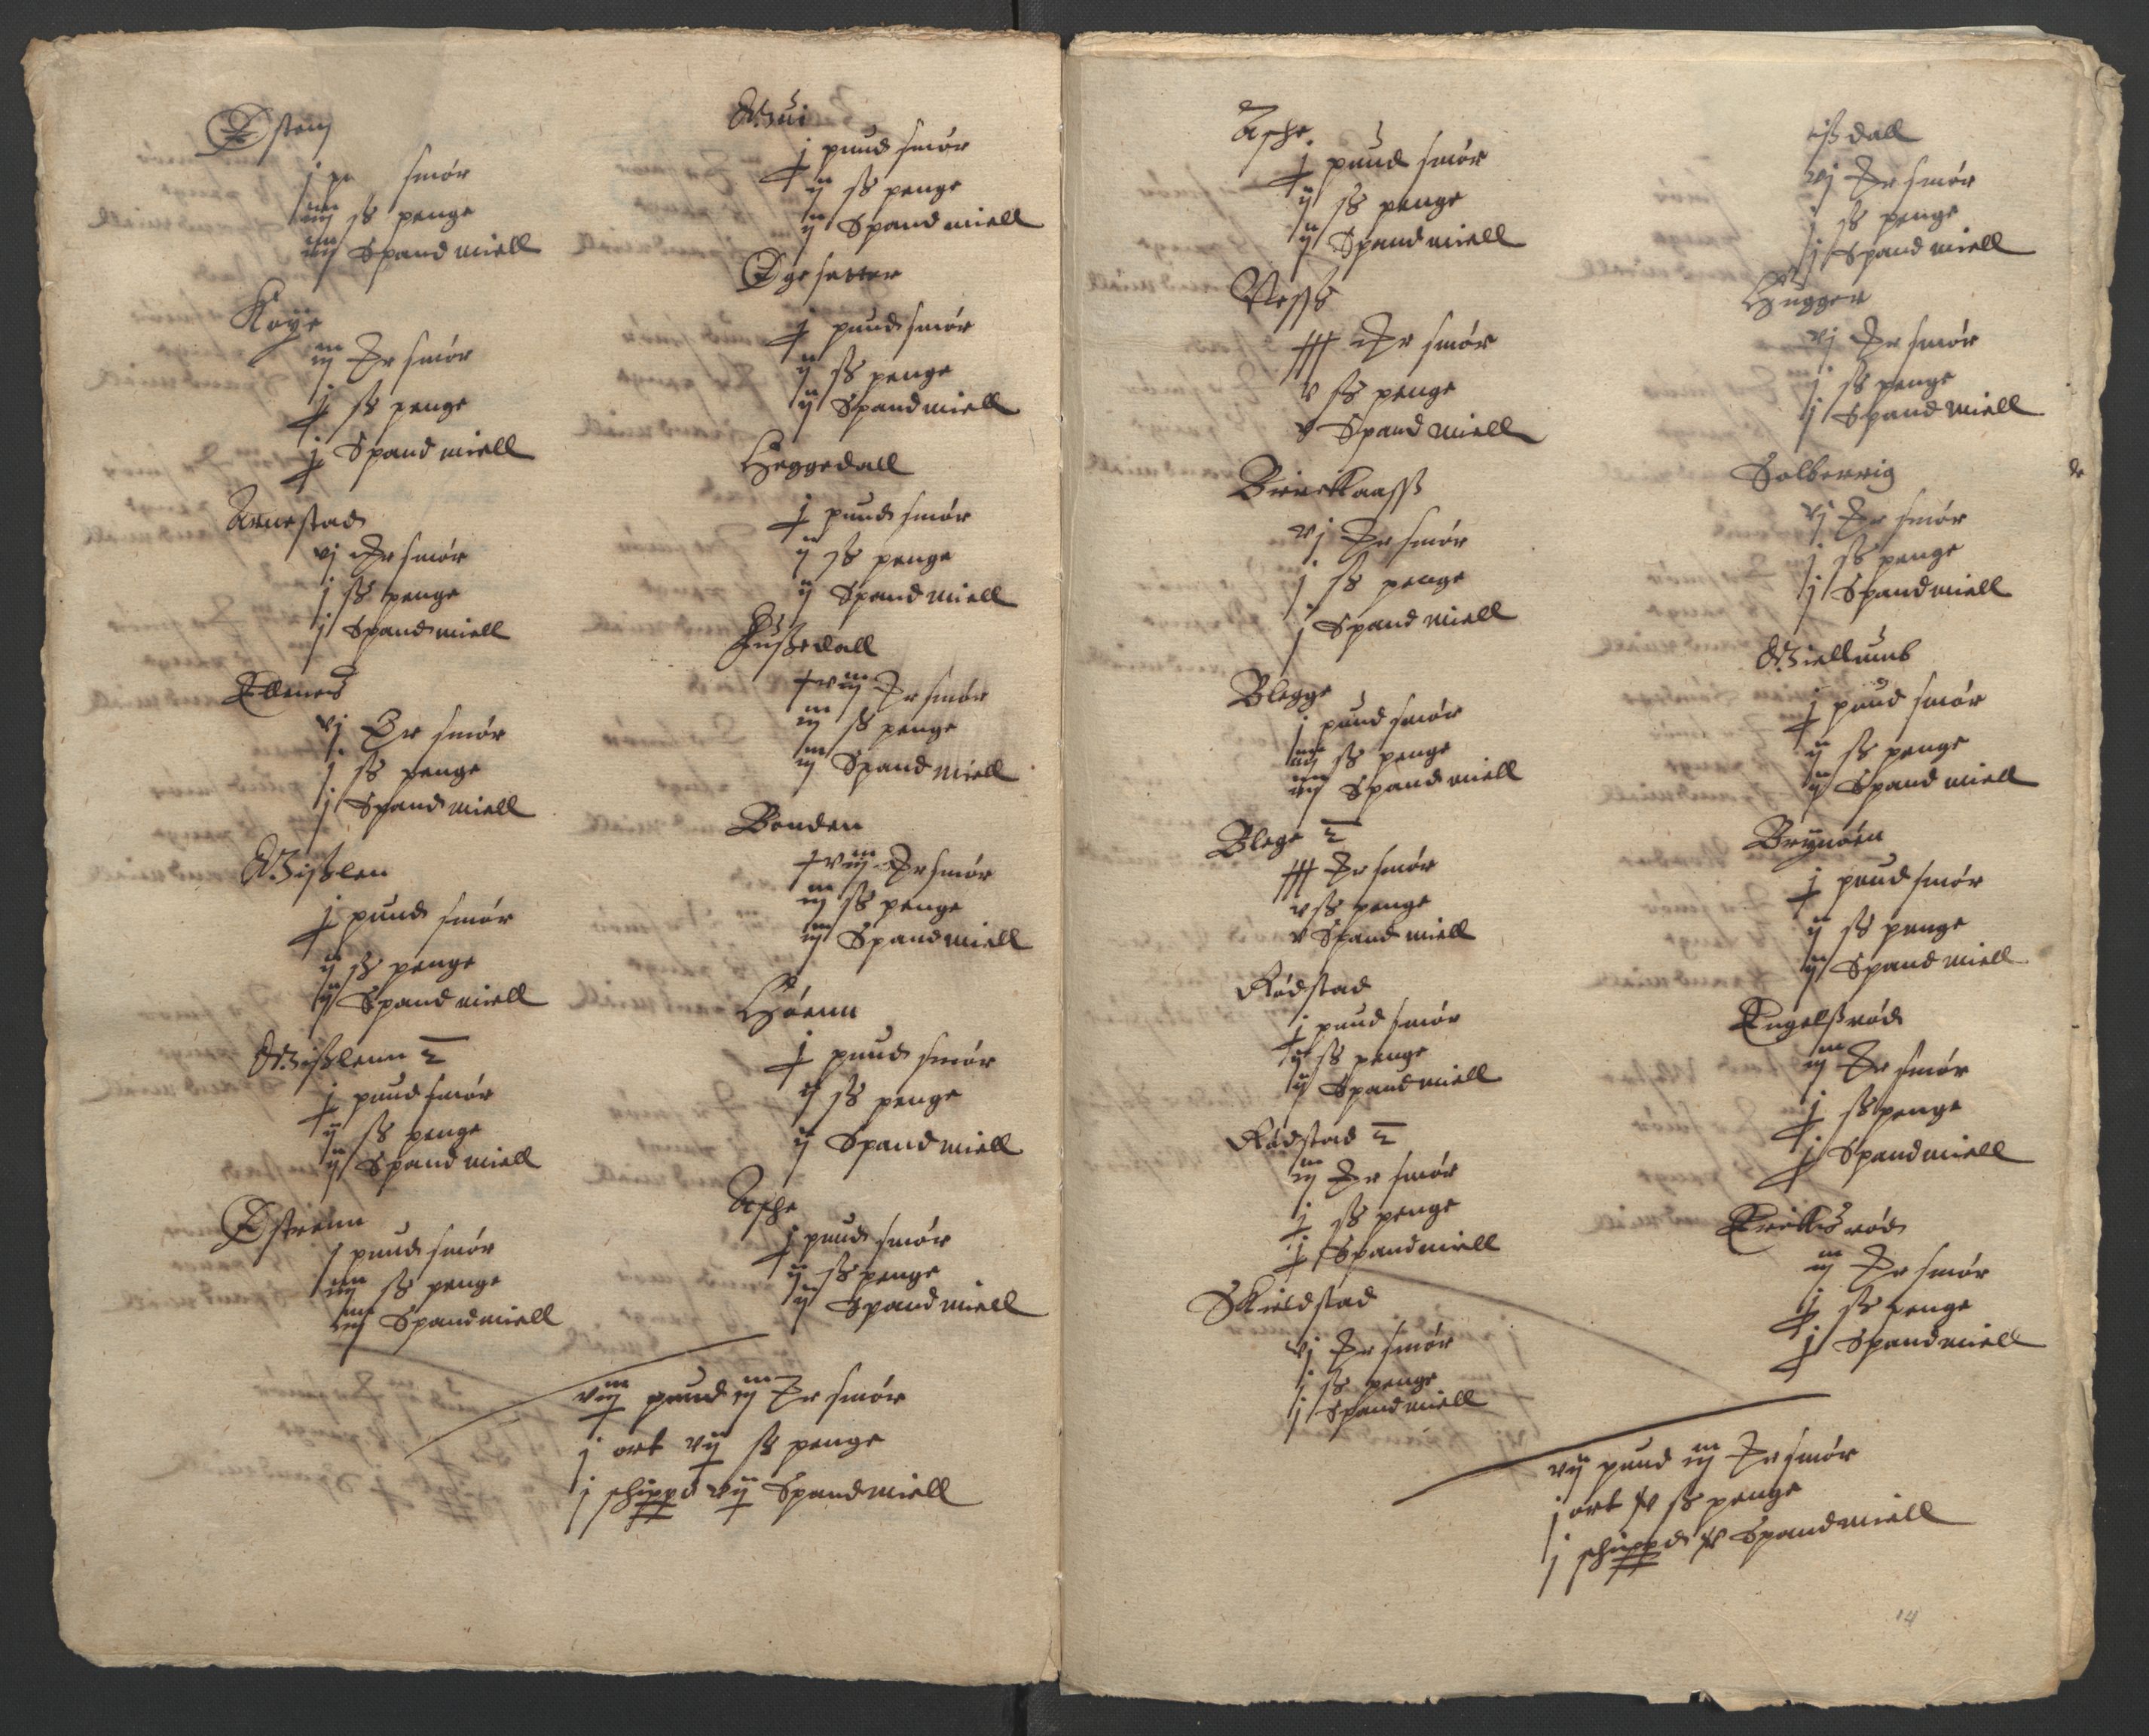 Østenn
j pu smør
iiij ß penge
iiij Spand miell
Køye
iij Ør smør
j ß penge
j Spand miell
Arnestad
vj Ør smør
j ß penge
j Spand miell
Ellenes
vj Ør smør
j ß penge
j Spand miell
Misslen
j pund smør
ij ß penge
ij Spand miell
Misslenn 2
j pund smør
ij ß penge
ij Spand miell
Østrenn
j pund smør
iiij ß penge
iiij Spand miell
Mui
j pund smør
ij ß penge
ij Spand miell
Øgesetter
j pund smør
ij ß penge
ij Spand miell
Heggedall
j pund smør
ij ß penge
ij Spand miell
Gussedall
xviij Ør smør
iij ß penge
iij Spand miell
Bonden
xviij Ør smør
iij ß penge
iij Spand miell
Høenn
j pund smør
ij ß penge
ij Spand miell
Asche
j pund smør
ij ß penge
ij Spand miell
viij pund iij Ør smør
j ort vij ß penge
j schippd vij Spand miell
Asche
j pund smør
ij ß penge
ij Spand miell
Ness
Ør smør
v ß penge
v Spand miell
Bierckaass
vj Ør smør
j ß penge
j Spand miell
Blegge
j pund smør
iiij ß penge
iiij Spand miell
Blege 2
Ør smør
v ß penge
v Spand miell
Rødstad
j pund smør
ij ß penge
ij Spand miell
Rødstad 2
iij Ør smør
j ß penge
j Spand miell
Skieldstad
vj Ør smør
j ß penge
j Spand miell
issdall
vj Ør smør
j ß penge
j Spand miell
Hugger
vj Ør smør
j ß penge
j Spand miell
Solberrig
vj Ør smør
j ß penge
j Spand miell
Miellumb
j pund smør
ij ß penge
ij Spand miell
Brynøen
j pund smør
ij ß penge
ij Spand miell
Engelssrød
iij Ør smør
j ß penge
j Spand miell
Erickisrød
iij Ør smør
j ß penge
j Spand miell
vij pund iij Ør smør
j ort xv ß penge
j schippd xv Spand miell
14